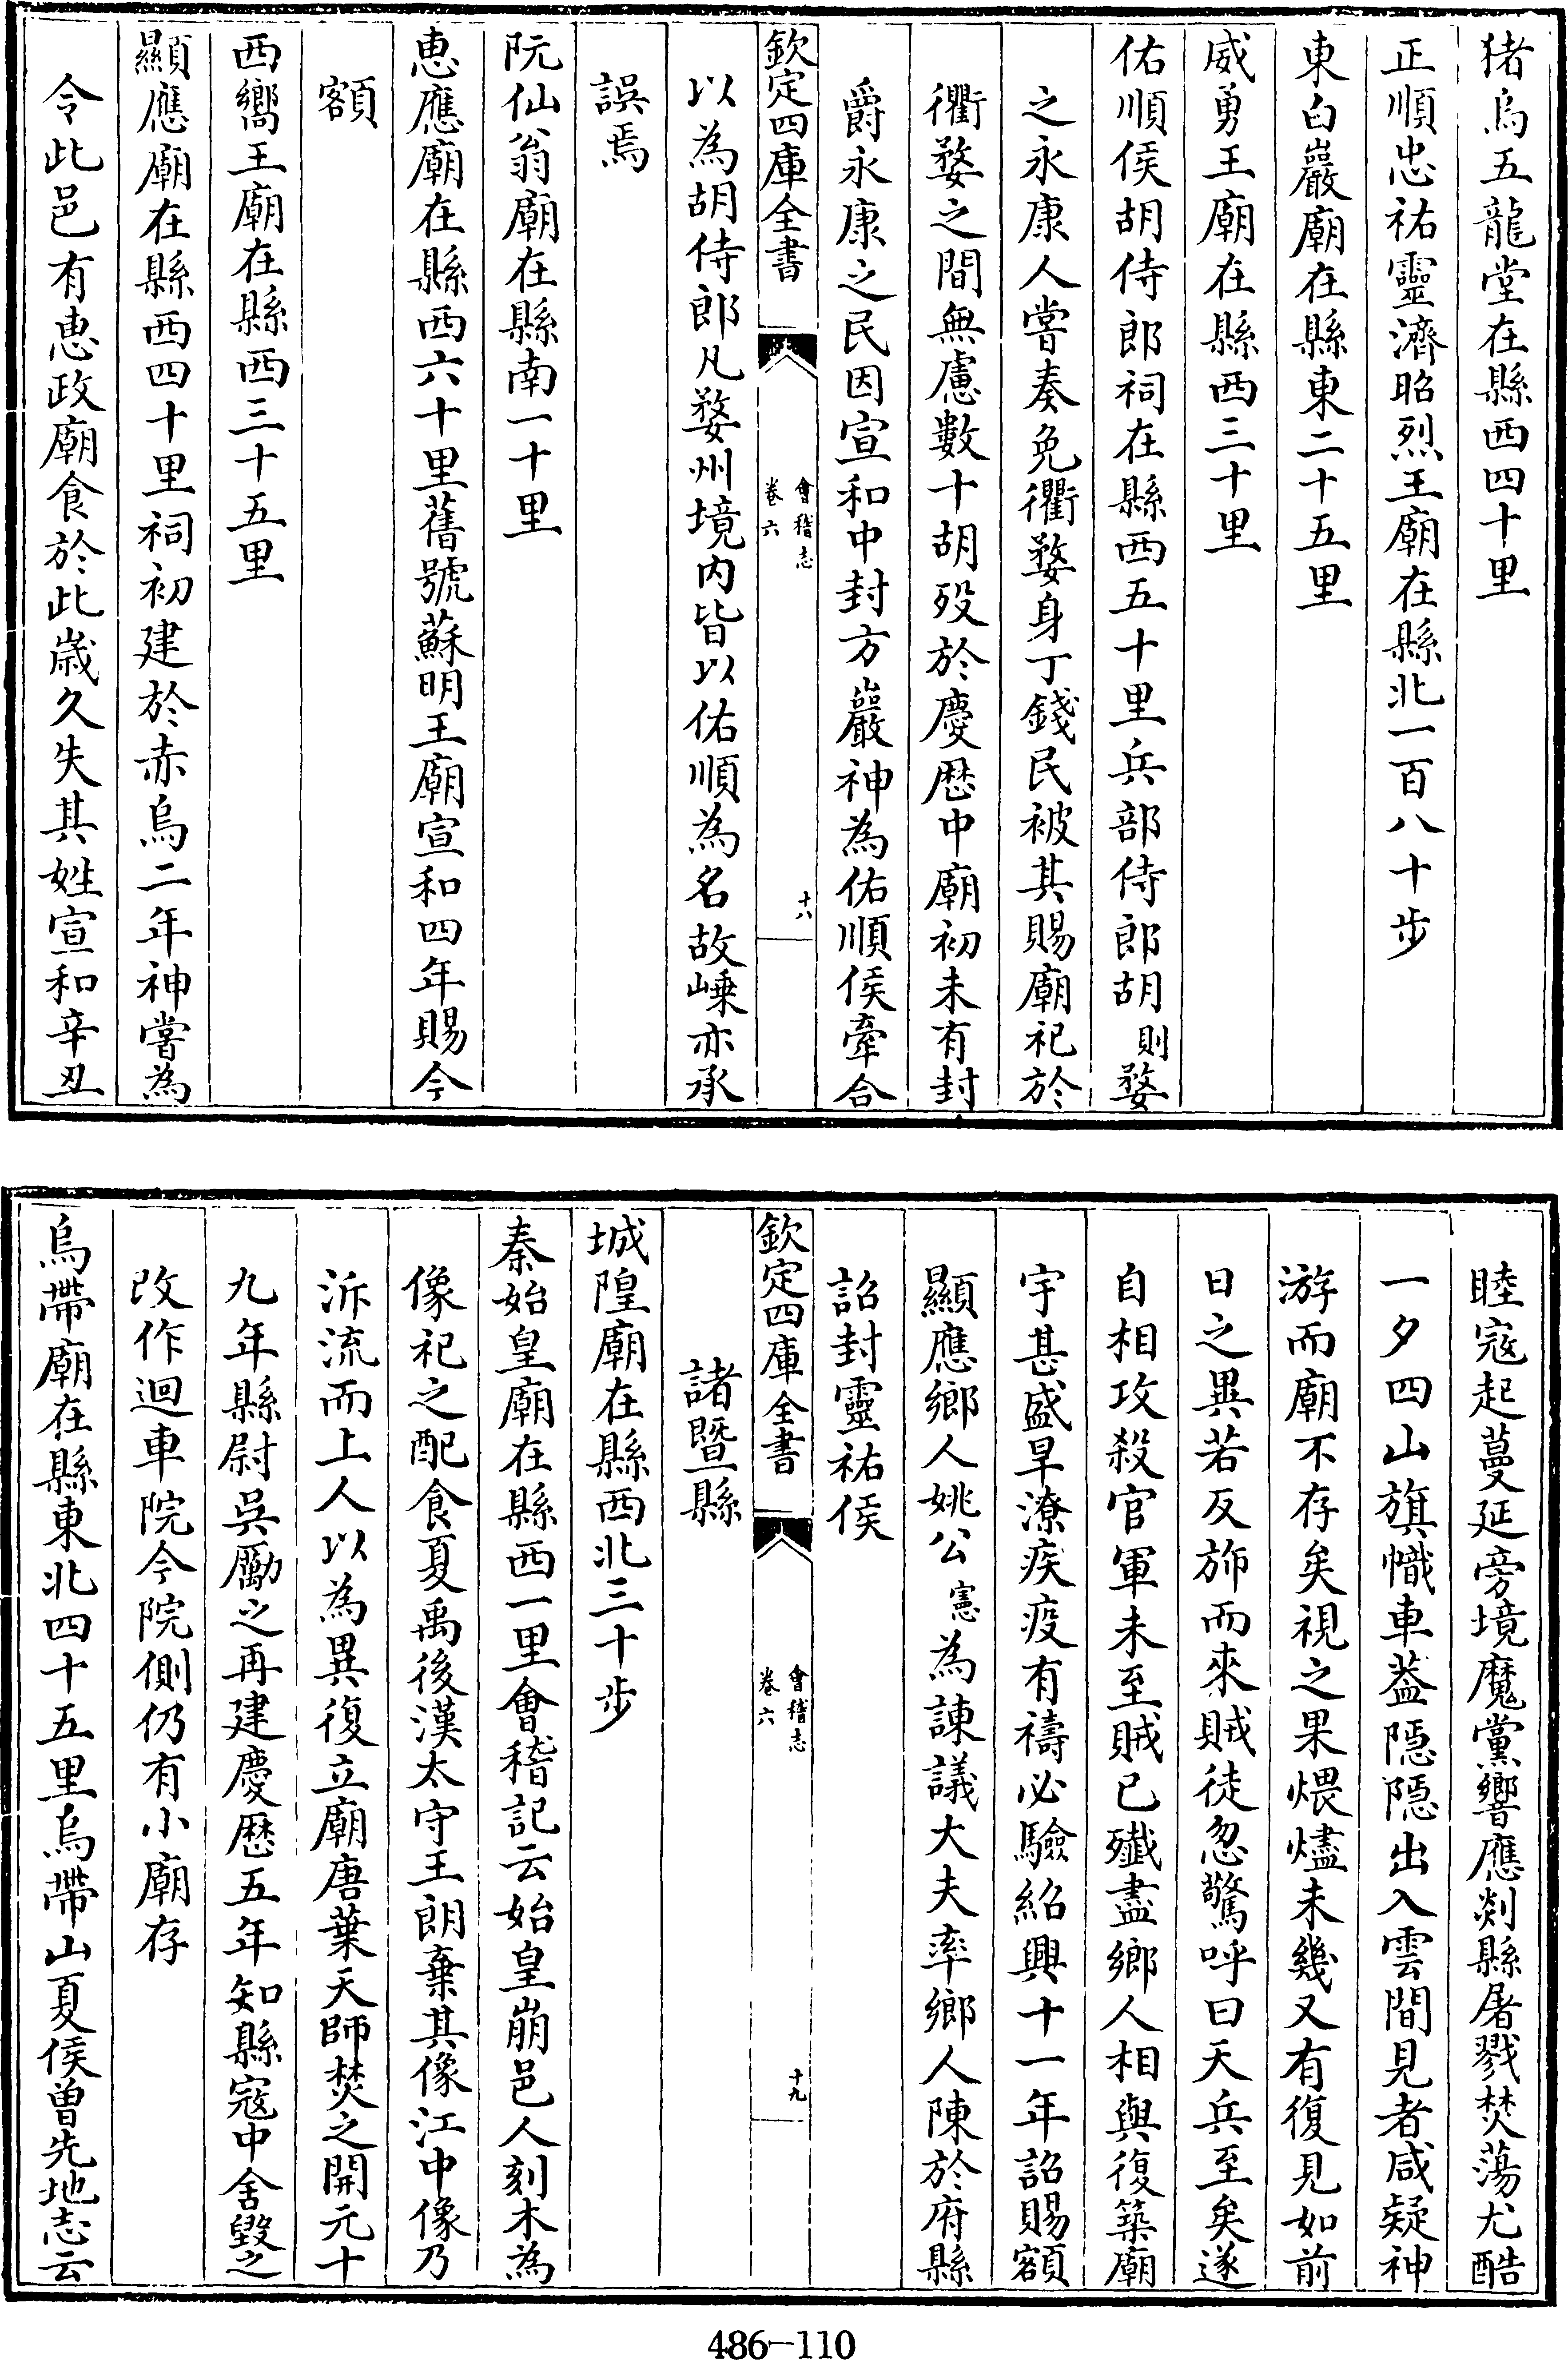 猪烏五龍堂在縣西四十里
正順忠祐靈濟昭烈王廟在縣北一百八十步
東白巖廟在縣東二十五里
威勇王廟在縣西三十里
佑順侯胡侍郎祠在縣西五十里兵部侍郎胡則婺
之永康人嘗奏免衢婺身丁錢民被其賜廟祀於
衢婺之間無慮數十胡歿於慶厯中廟初未有封
爵永康之民因宣和中封方巖神為佑順侯牽合
欽定四庫全書
會稽志
卷六
十八
以為胡侍郎凡婺州境内皆以佑順為名故嵊亦承
誤焉
阮仙翁廟在縣南一十里
惠應廟在縣西六十里舊號蘇明王廟宣和四年賜今
額
西嚮王廟在縣西三十五里
顯應廟在縣西四十里祠初建於赤烏二年神嘗為
令此邑有惠政廟食於此歲久失其姓宣和辛丑
睦寇起蔓延旁境魔黨響應剡縣屠戮焚蕩尤酷
一夕四山旗幟車蓋隱隱出入雲間見者咸疑神
游而廟不存矣視之果煨燼未幾又有復見如前
日之異若反斾而來賊徒忽驚呼曰天兵至矣遂
自相攻殺官軍未至賊已殲盡鄉人相與復築廟
宇甚盛旱潦疾疫有禱必驗紹興十一年詔賜額
顯應鄉人姚公憲為諫議大夫率鄉人陳於府縣
詔封靈祐侯
欽定四庫全書
會稽志
卷六
十九
諸暨縣
城隍廟在縣西北三十步
秦始皇廟在縣西一里會稽記云始皇崩邑人刻木為
像祀之配食夏禹後漢太守王朗棄其像江中像乃
泝流而上人以為異復立廟唐葉天師焚之開元十
九年縣尉吳勵之再建慶厯五年知縣寇中舍毀之
改作迴車院今院側仍有小廟存
烏帶廟在縣東北四十五里烏帶山夏侯曽先地志云
486-110